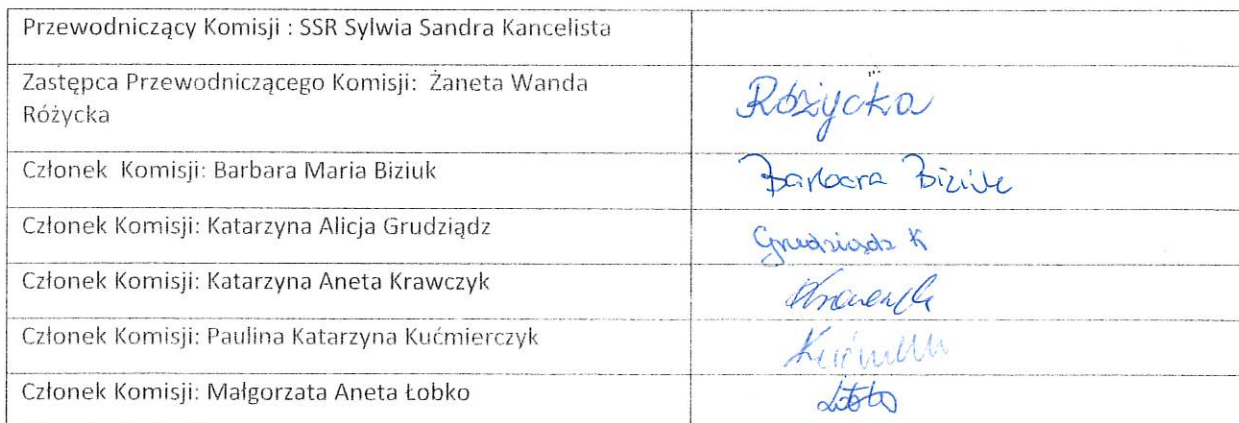 Przewodniczący Komisji : SSR Sylwia Sandra Kancelista
Zastępca Przewodniczącego Komisji: Żaneta Wanda
Różycka
Różycka
Członek Komisji: Barbara Maria Biziuk
Barbara Biziuk
Członek Komisji: Katarzyna Alicja Grudziądz
Grudziądz K
Członek Komisji: Katarzyna Aneta Krawczyk
Członek Komisji: Paulina Katarzyna Kućmierczyk
Członek Komisji: Małgorzata Aneta Łobko